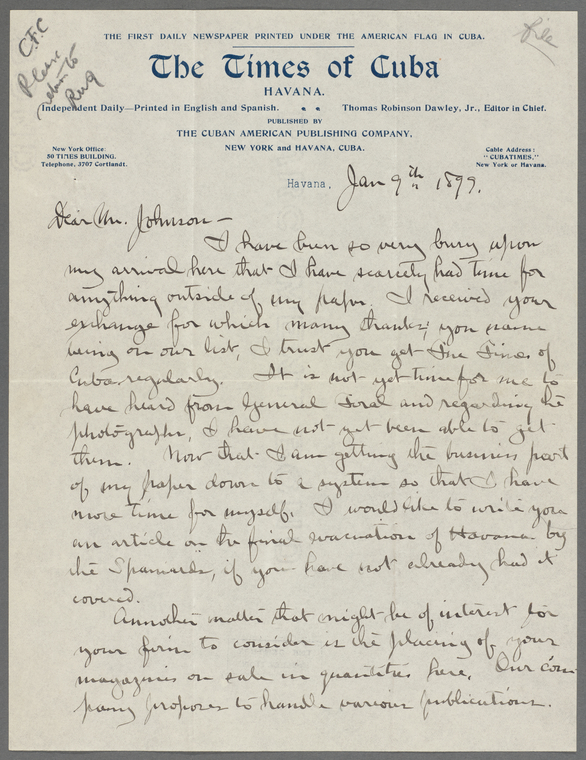 C.F.C
Please
return to
RUJ
file
THE FIRST DAILY NEWSPAPER PRINTED UNDER THE AMERICAN FLAG IN CUBA.
The Times of Cuba
HAVANA.
Independent Daily—Printed in English and Spanish.
Thomas Robinson Dawley, Jr., Editor in Chief.
PUBLISHED BY
THE CUBAN AMERICAN PUBLISHING COMPANY,
NEW YORK and HAVANA, CUBA.
New York Office
50 TIMES BUILDING.
Telephone, 3707 Cortlandt.
Cable Address:
"CUBATIMES,"
New York or Havana.
Havana, Jan 9th 1899.
Dear Mr. Johnson—
I have been so very busy upon
my arrival here that I have scarcely had time for
anything outside of my paper. I received your
exchange for which many thanks; you name
being on our list, I trust you get The Times of
Cuba regularly. It is not yet time for me to
have heard from General Toral and regarding the
photographs, I have not yet been able to get
them. Now that I am getting the business part
of my paper down to a system so that I have
more time for myself. I would like to write you
an article on the final evacuation of Havana by
the Spaniards, if you have not already had it
covered.
Annother matter that might be of interest for
your firm to consider is the placing of your
magazines on sale in quantities here. Our com
pany proposes to handle various publications.